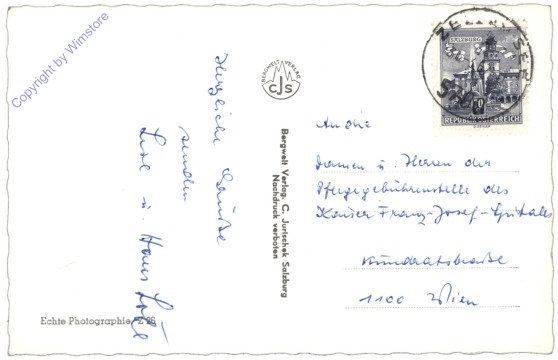 Copyright by Wimstore
Herzliche Grüße
senden
Lise u. Hans
BERGWELT VERLAG
CJS
Bergwelt Verlag, C. Jurischek Salzburg
Nachdruck verboten
Echte Photographie
SALZBURG
REPUBLIK ÖSTERREICH
An die
Damen u. Herren der
Pflegegebührenstelle des
Kaiser Franz-Josef-Spitales
Kundratstraße
1100 Wien